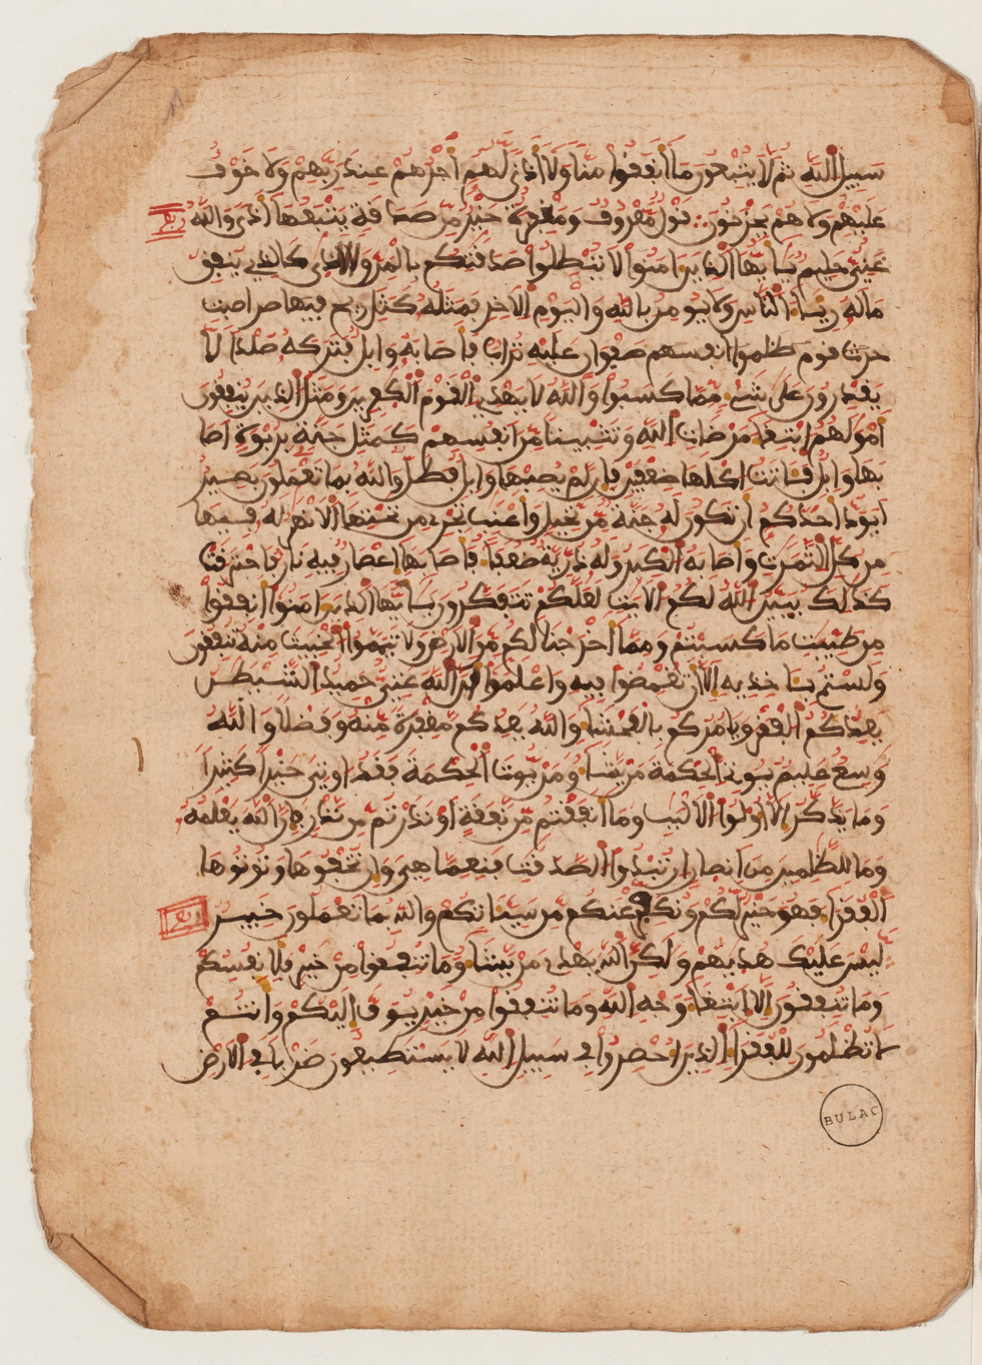 سبيل الله ثم لا يتبعون ما أنفقوا منا ولا أذى لهم أجرهم عند ربهم ولا خوف
عليهم ولا هم يحزنون قول معروف ومغفرة خير من صدقة يتبعها أذى والله
غني حليم يايها الذين امنوا لا تبطلوا صدقتكم بالمن والاذى كالذي ينفق
ماله رياء الناس ولا يومن بالله واليوم الاخر فمثله كمثل ريح فيها صر اصابت
حرث قوم ظلموا انفسهم صفوان عليه تراب فاصابه وابل فتركه صلدا لا
يقدرون على شيء مما كسبوا والله لا يهدي القوم الكفرين ومثل الذين ينفقون
أمولهم ابتغاء مرضات الله وتثبيتا من انفسهم كمثل جنة بربوة اصا
بها وابل فئاتت اكلها ضعفين فإن لم يصبها وابل فطل والله بما تعملون بصير
أيود أحدكم أن تكون له جنة من نخيل وأعنب تجري من تحتها الأنهر له فيها
من كل الثمرت وأصابه الكبر وله ذرية ضعفاء فأصابها إعصار فيه نار فاحترقت
كذلك يبين الله لكم الايت لعلكم تتفكرون يايها الذين امنوا انفقوا
من طيبت ما كسبتم ومما أخرجنا لكم من الأرض ولا تيمموا الخبيث منه تنفقون
ولستم بئاخذيه إلا أن تغمضوا فيه واعلموا أن الله غني حميد الشيطن
يعدكم الفقر ويامركم بالفحشاء والله يعدكم مغفرة منه وفضلا والله
وسع عليم يوتي الحكمة من يشاء ومن يوت الحكمة فقد اوتي خيرا كثيرا
وما يذكر إلا أولوا الألبب وما أنفقتم من نفقة أو نذرتم من نذر فإن الله يعلمه
وما للظلمين من انصار ان تبدوا الصدقت فنعما هي وإن تخفوها وتوتوها
الفقراء فهو خير لكم ونكفر عنكم من سيئاتكم والله بما تعملون خبير
ليس عليك هديهم ولكن الله يهدي من يشاء وما تنفقوا من خير فلانفسكم
وما تنفقون إلا ابتغاء وجه الله وما تنفقوا من خير يوف اليكم وانتم
لا تظلمون للفقراء الذين احصروا في سبيل الله لا يستطيعون ضربا في الارض
BULAC